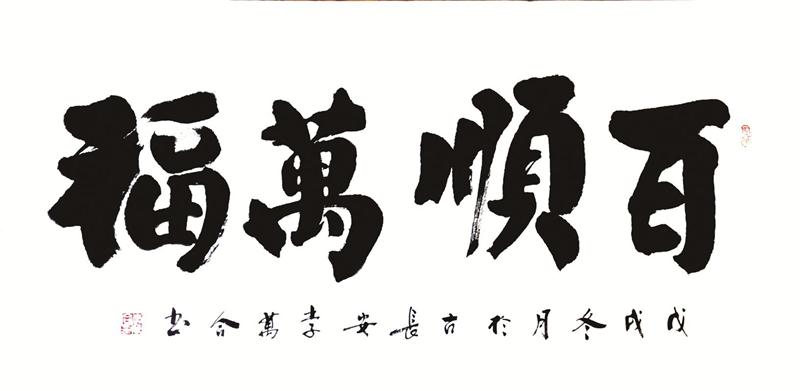 百順萬福
戊戌冬月於古長安李萬合书